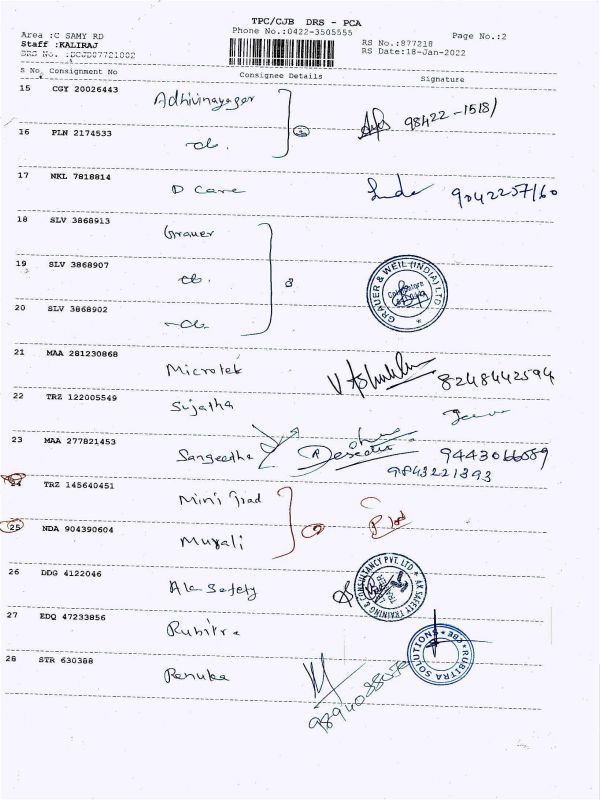 TPC/CJB DRS - PCA
Area :C SAMY RD Phone No.:0422-3505555 Page No.:2
Staff :KALIRAJ RS No.:877218
DRS No. :DCJD87721802 RS Date:18-Jan-2022
S No. Consignment No Consignee Details Signature
15 CGY 20026443 Adhivinayagar 98422-15181
16 PLN 2174533 do.
17 NKL 7818814 D Care 9042257160
18 SLV 3868913 Grauer
19 SLV 3868907 do. 3
GRAUER & WEIL (INDIA) LTD
20 SLV 3868902 do
21 MAA 281230868 Microtek 8248442594
22 TRZ 122005549 Sujatha
23 MAA 277821453 Sangeetha 9443066059
9843221393
24 TRZ 145640451 Mini Trad
25 NDA 904390604 Murali
26 DDG 4122046 Ale Safety
AK SAFETY TRAINING & CONSULTANCY PVT. LTD
27 EDQ 47233856 Rubitra
RUBITRA SOLUTIONS CBE
28 STR 630388 Renuka